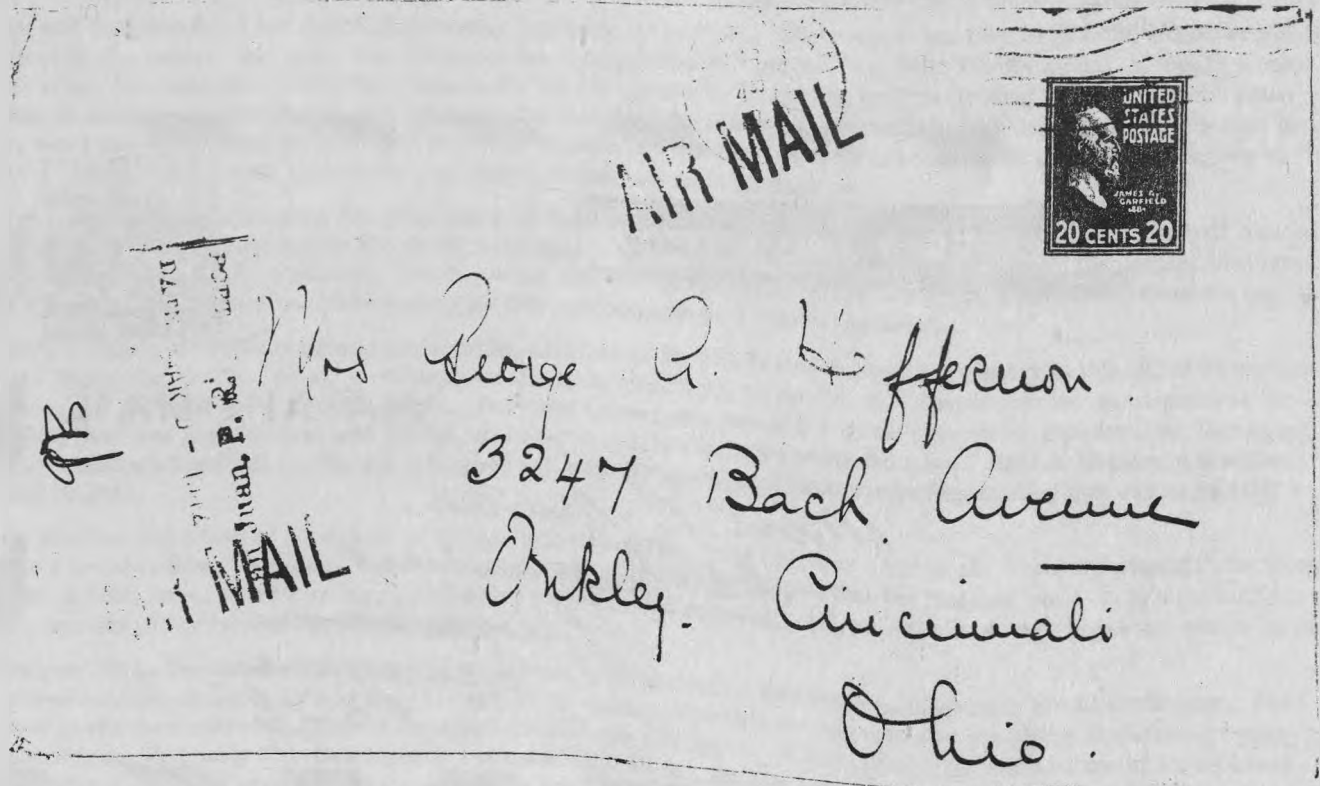 AIR MAIL
UNITED
STATES
POSTAGE
JAMES A.
GARFIELD
20 CENTS 20
Mrs George A Heffernon
3247 Back Avenue
Oakley. Cincinnati
Ohio.
MAIL